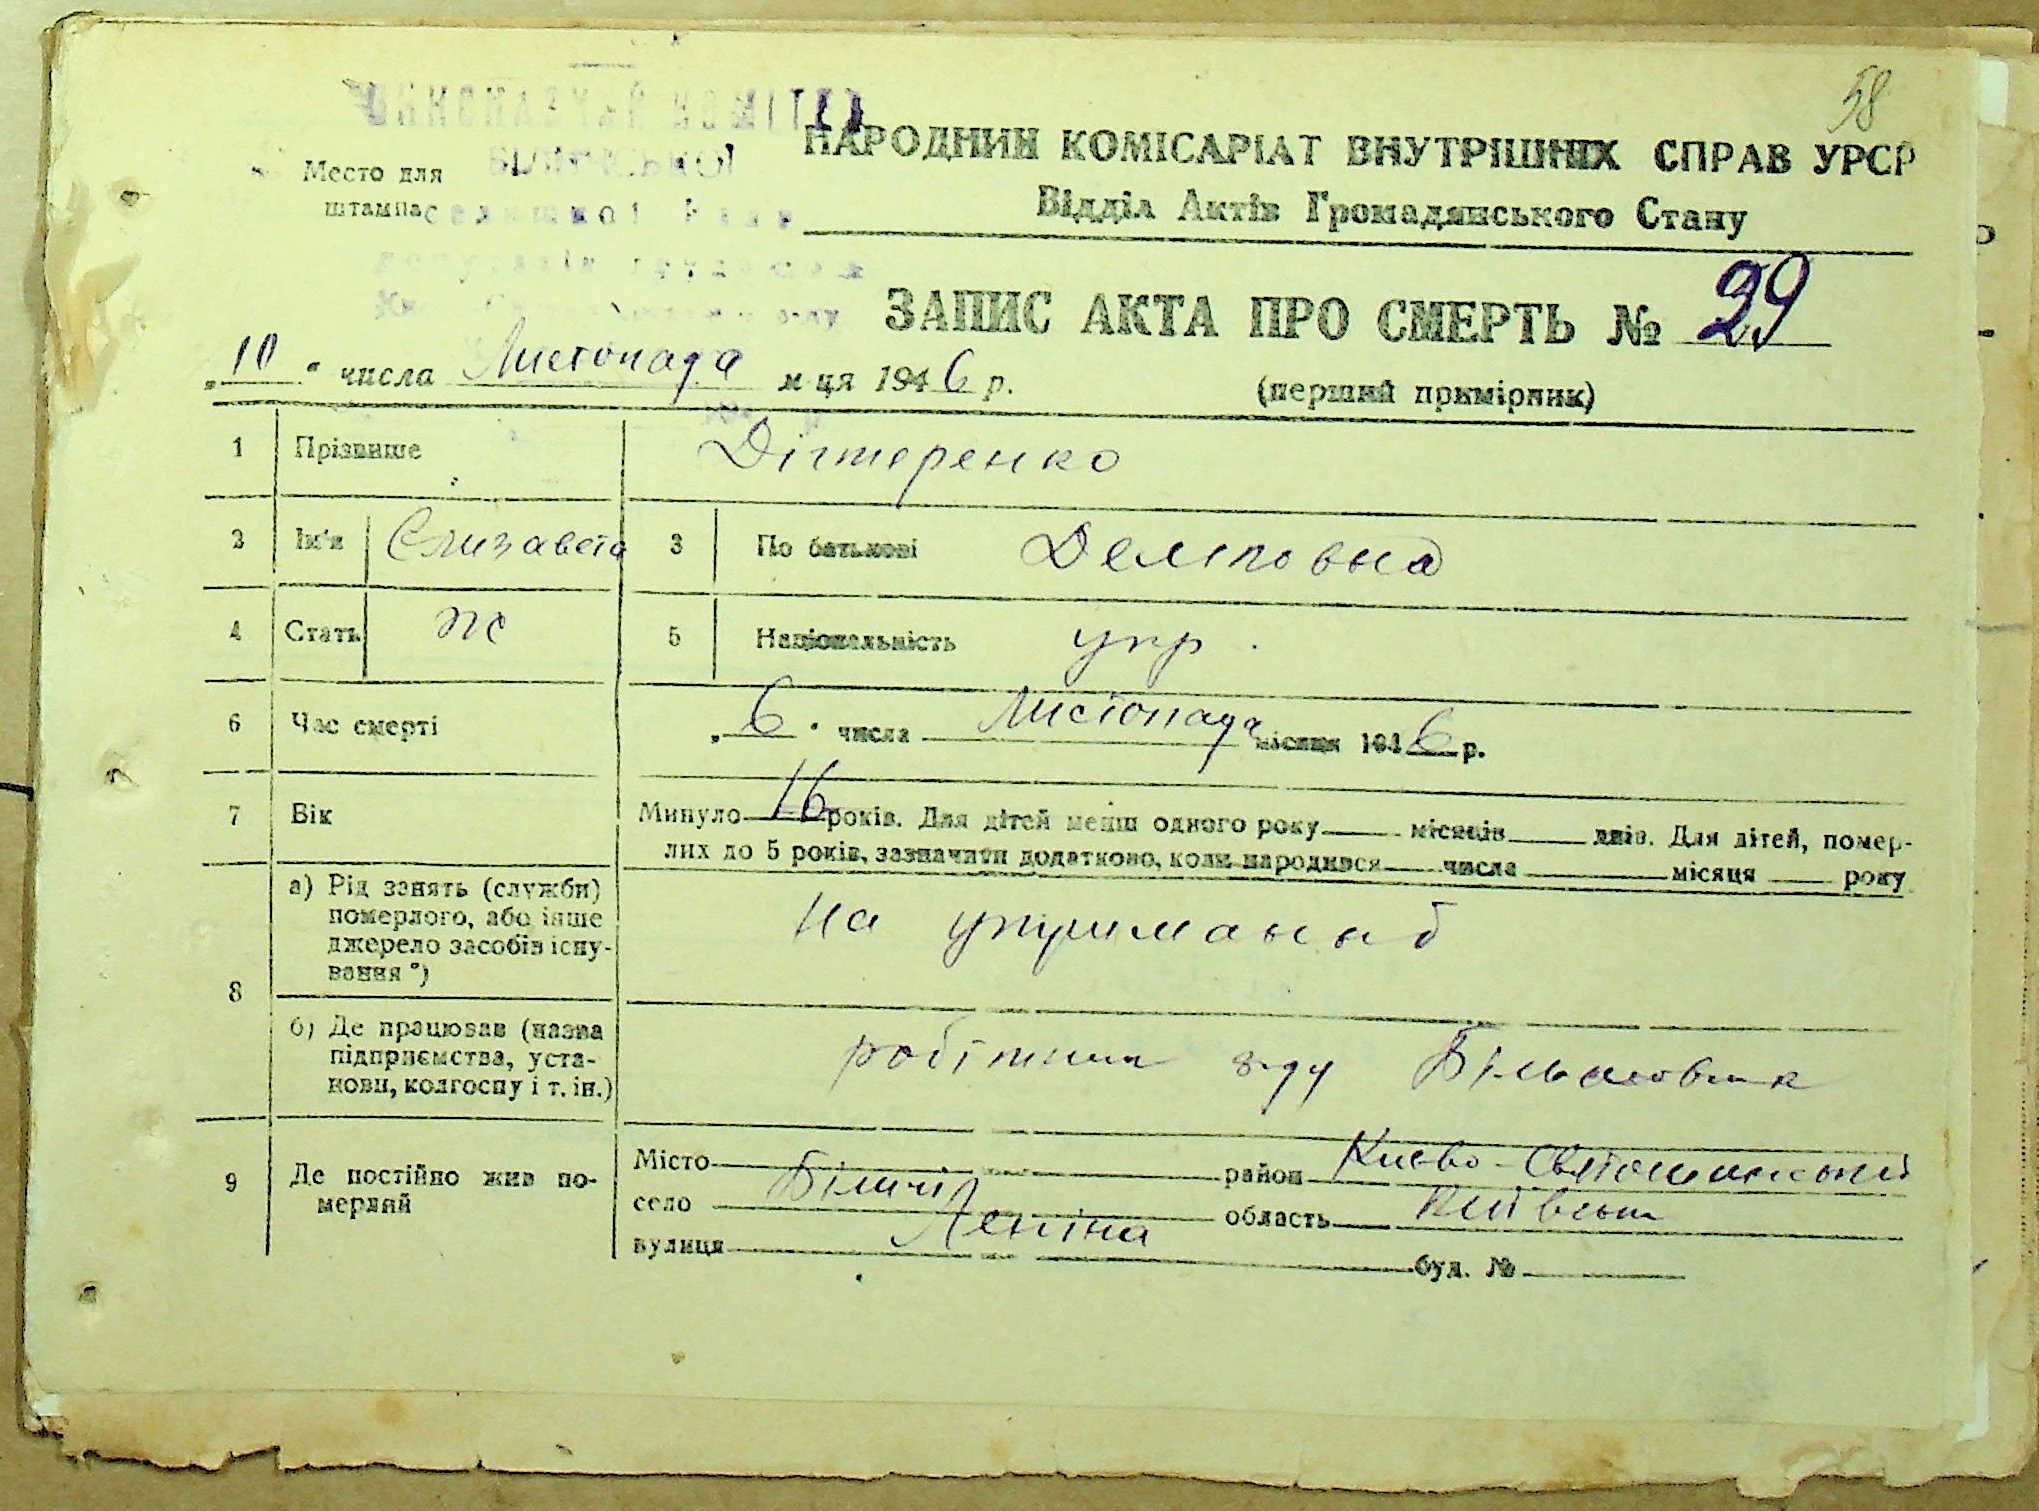 58
НАРОДНИЙ КОМІСАРІАТ ВНУТРІШНІХ СПРАВ УРСР
Место для
штампа
селищної Ради
Відділ Актів Громадянського Стану
депутатів трудящих
ЗАПИС АКТА ПРО СМЕРТЬ № 29
„10" числа Листопада м ця 1946 р. (перший примірник)
1 Прізвище Дігтеренко
2 Ім'я Єлизавета 3 По батькові Демповна
4 Стать ж 5 Національність укр.
6 Час смерті „6" числа Листопада місяця 1946 р.
7 Вік Минуло 16 років. Для дітей менш одного року місяців днів. Для дітей, помер-
лих до 5 років, зазначити додатково, коли народився числа місяця року
8 а) Рід занять (служби)
померлого, або інше
джерело засобів існу-
вання*)
на утриманні
б) Де працював (назва
підприємства, уста-
нови, колгоспу і т. ін.)
робітник з-ду Більшовик
9 Де постійно жив по-
мерлий
Місто район Києво-Святошинський
село Біличі область Київськ
вулиця Леніна буд. №